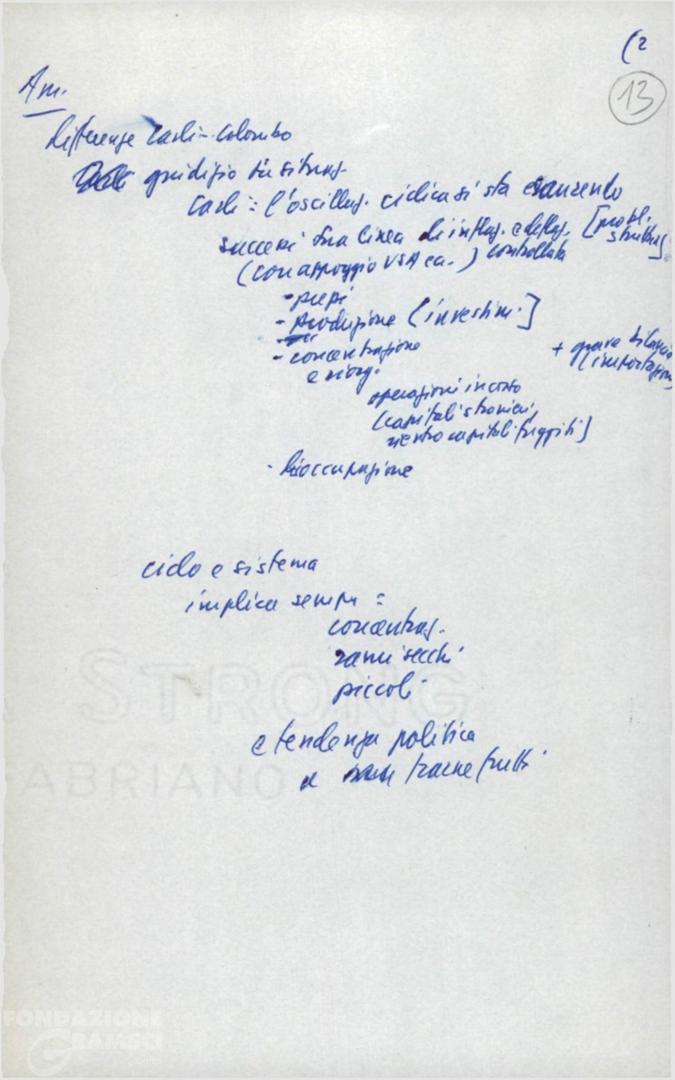 (2
13
Am.
differenze Carli-Colombo
giudizio su situaz.
Carli: l'oscillaz. ciclica si sta esaurendo
successi sua linea di inflaz. e deflaz. [probl.
struttur.]
(con appoggio USA ca.) controllata
- prezzi
- produzione [investim.]
- concentrazione
e riorg.
+ grave bilancia
(importazioni
operazioni in corso
(capitali stranieri,
rientro capitali fuggiti)
- disoccupazione
ciclo e sistema
implica sempre:
concentraz.
rami secchi
piccoli
e tendenza politica
a trarne frutti
STRONG
FABRIANO
FONDAZIONE
GRAMSCI